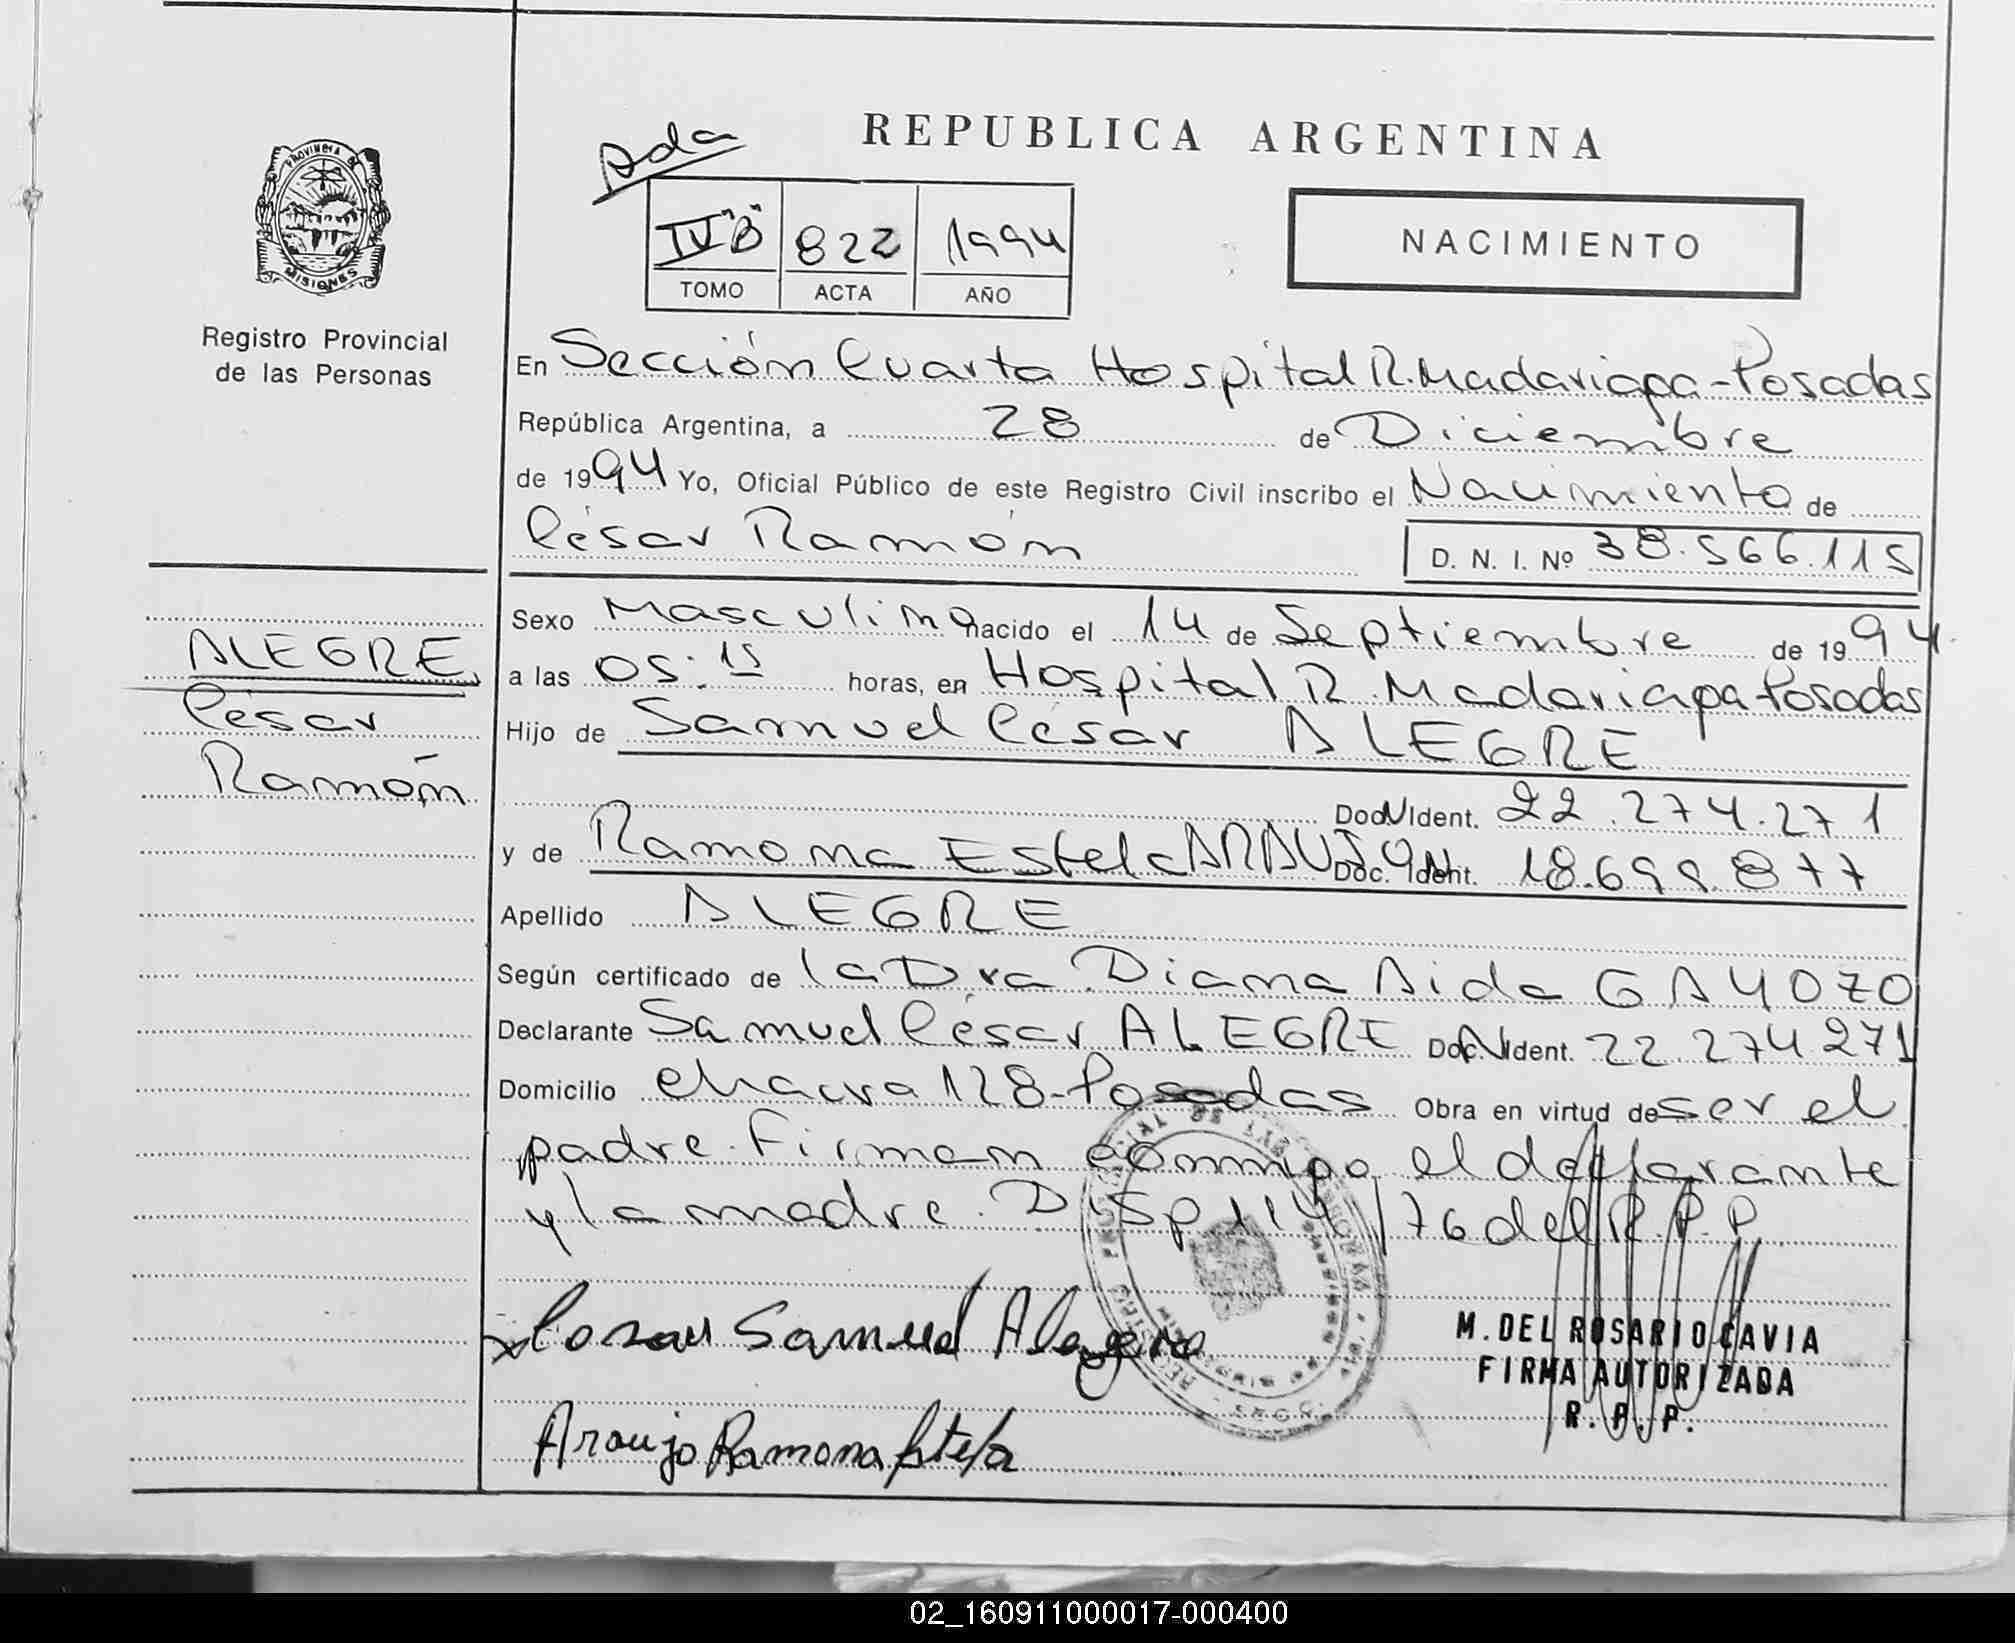 REPUBLICA ARGENTINA
Ada
IV "B" 822 1994
TOMO ACTA AÑO
NACIMIENTO
PROVINCIA DE
MISIONES
Registro Provincial
de las Personas
En Sección Cuarta Hospital R. Madariaga - Posadas
República Argentina, a 28 de Diciembre
de 1994 Yo, Oficial Público de este Registro Civil inscribo el Nacimiento de
César Ramón
D. N. I. Nº 38.566.115
ALEGRE
César
Ramón
Sexo Masculino nacido el 14 de Septiembre de 1994.
a las 05:15 horas, en Hospital R. Madariaga Posadas
Hijo de Samuel César ALEGRE
Doc. Ident. 22.274.271
y de Ramona Estela ARAUJO Doc. Ident. 18.699.877
Apellido ALEGRE
Según certificado de la Dra. Diana Aida GAYOZO
Declarante Samuel César ALEGRE Doc. Ident. 22 274 271
Domicilio chacra 128 - Posadas Obra en virtud de ser el
padre. Firman conmigo el declarante
y la madre. Disp 114/76 del R.P.P.
x Cesar Samuel Alegre
Araujo Ramona Estela
M. DEL ROSARIO CAVIA
FIRMA AUTORIZADA
R. P. P.
02_160911000017-000400